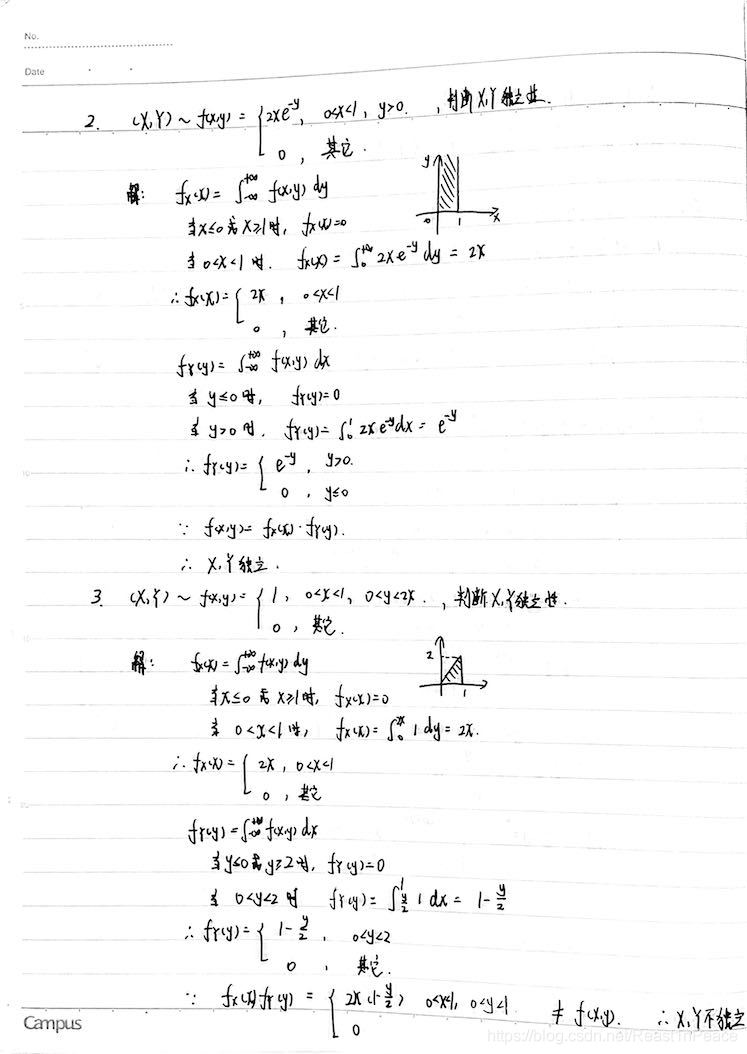 No.
Date
2. (X,Y) ~ f(x,y) = { 2xe^{-y}, 0<x<1, y>0. , 判断X,Y独立性.
0, 其它.
解: f_X(x) = ∫_{-∞}^{+∞} f(x,y) dy
y
0 1 x
当x≤0或x≥1时, f_X(x)=0
当0<x<1时. f_X(x) = ∫_0^{+∞} 2xe^{-y} dy = 2x
∴ f_X(x) = { 2x, 0<x<1
0, 其它.
f_Y(y) = ∫_{-∞}^{+∞} f(x,y) dx
当 y≤0 时, f_Y(y)=0
当 y>0 时. f_Y(y) = ∫_0^1 2xe^{-y}dx = e^{-y}
∴ f_Y(y) = { e^{-y}, y>0.
0, y≤0
∵ f(x,y) = f_X(x)·f_Y(y).
∴ X,Y独立.
3. (X,Y) ~ f(x,y) = { 1, 0<x<1, 0<y<2x. , 判断X,Y独立性.
0, 其它.
解: f_X(x) = ∫_{-∞}^{+∞} f(x,y) dy
2
1
当x≤0或x≥1时, f_X(x)=0
当 0<x<1时, f_X(x) = ∫_0^{2x} 1 dy = 2x.
∴ f_X(x) = { 2x, 0<x<1
0, 其它
f_Y(y) = ∫_{-∞}^{+∞} f(x,y) dx
当y≤0或y≥2时, f_Y(y)=0
当 0<y<2 时 f_Y(y) = ∫_{y/2}^1 1 dx = 1-y/2
∴ f_Y(y) = { 1-y/2, 0<y<2
0, 其它.
∵ f_X(x)f_Y(y) = { 2x(1-y/2) 0<x<1, 0<y<1 ≠ f(x,y). ∴ X,Y不独立
0
Campus
https://blog.csdn.net/ReastTmPeace